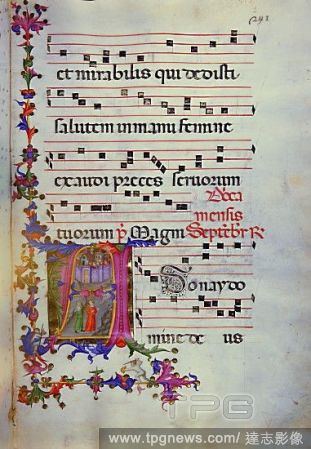 241
et mirabilis qui dedisti
salutem in manu femine
exaudi preces servorum
tuorum ṽ Magni
Septembr R⁊
mensis
Adonay do
mine de us
TPG
www.tpgnews.com/達志影像